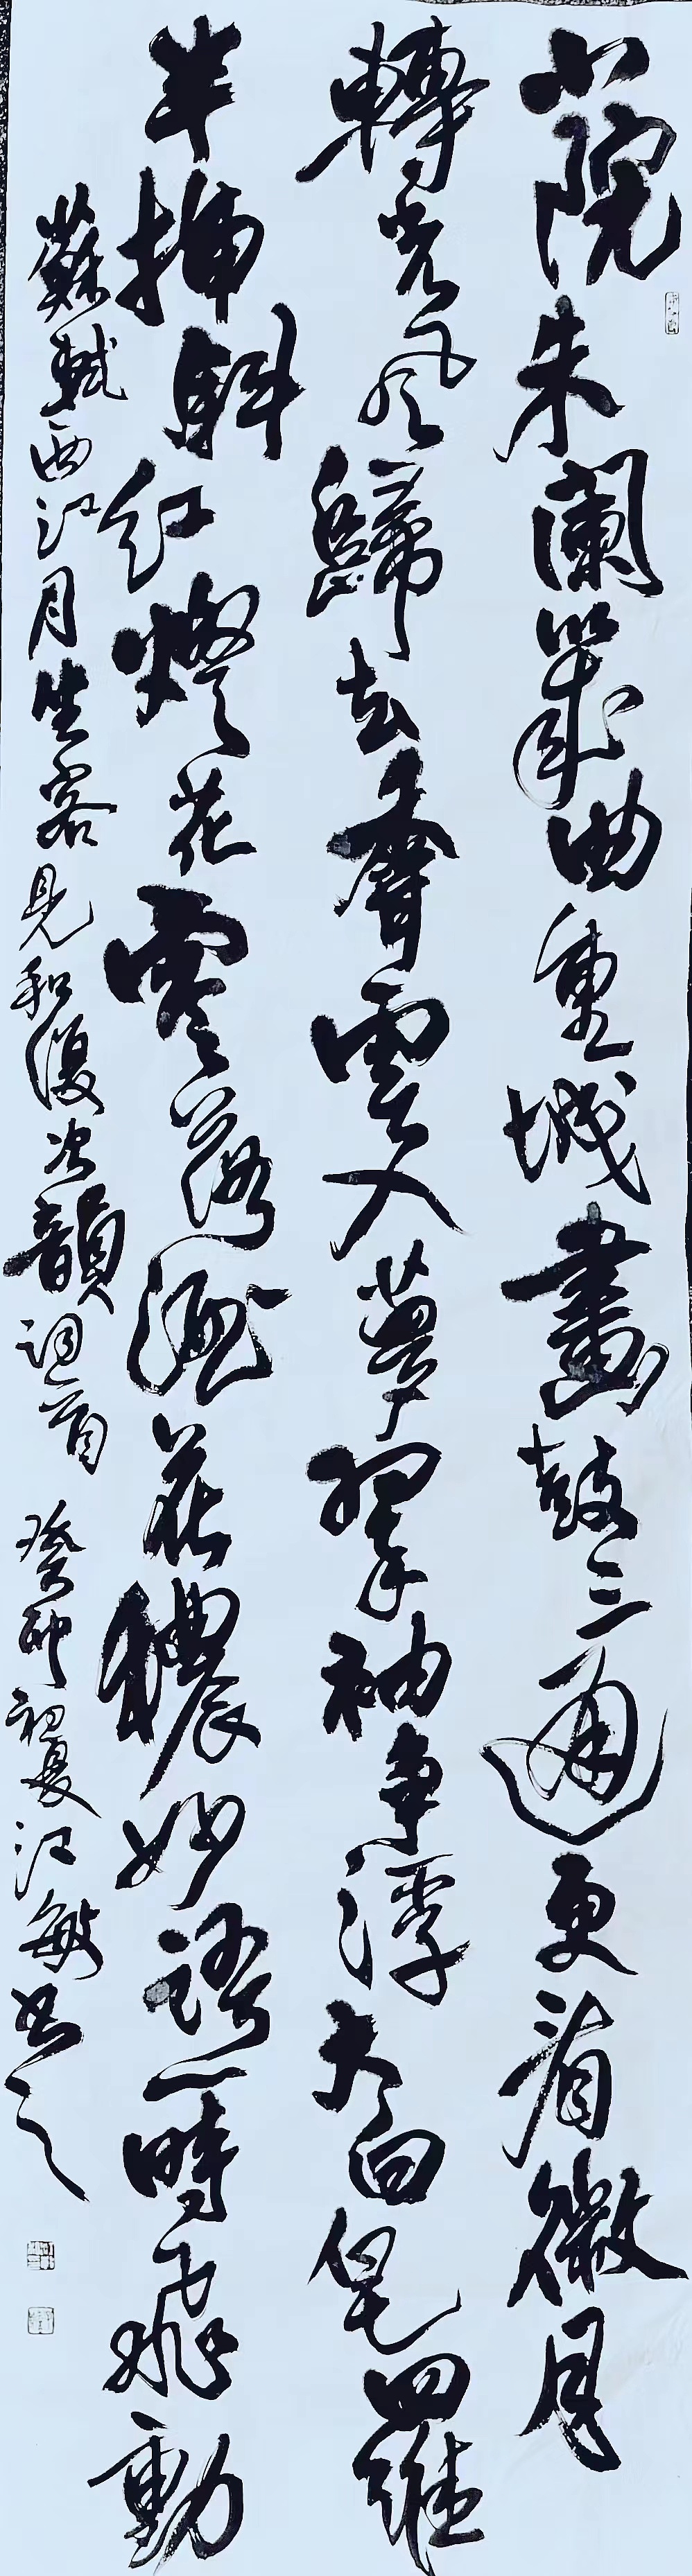 小院朱闌幾曲重城畫鼓三通更看微月
轉光風歸去香雲入夢翠袖爭浮大白皂羅
半插斜紅燈花零落酒花穠妙語一時飛動
蘇軾西江月坐客見和復次韻詞一首 癸卯初夏江敏書之